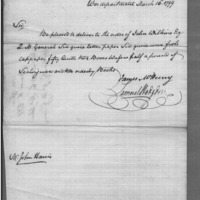 War department March 16. 1799
Sir
Be pleased to deliver to the order of John Wilkins Esq
Q. M. General Six quire letter paper Six quires
fifty Quills two Boxes Wafers half a pound of
James McHenry
Samuel Hodgdon
Mr. John Harris